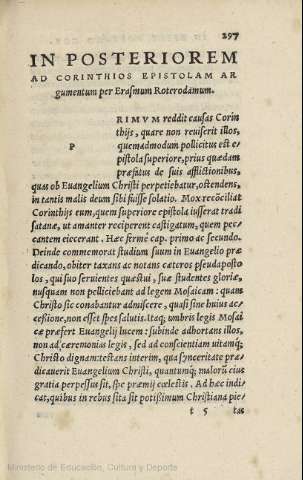 297
IN POSTERIOREM
AD CORINTHIOS EPISTOLAM AR
gumentum per Erasmum Roterodamum.
PRIMVM reddit causas Corin
thijs, quare non reuiserit illos,
quemadmodum pollicitus est e-
pistola superiore, prius quædam
præfatus de suis afflictionibus,
quas ob Euangelium Christi perpetiebatur, ostendens,
in tantis malis deum sibi fuisse solatio. Mox recōciliat
Corinthijs eum, quem superiore epistola iusserat tradi
satanæ, ut amanter reciperent castigatum, quem pec-
cantem eiecerant. Hæc fermè cap. primo ac secundo.
Deinde commemorat studium suum in Euangelio præ
dicando, obiter taxans ac notans cæteros pseudaposto
los, qui suo seruientes quæstui, suæ studentes gloriæ,
nusquam non pelliciebant ad legem Mosaicam: quam
Christo sic conabantur admiscere, quasi sine huius ac-
cessione, non esset spes salutis. Itaq; umbris legis Mosai
cæ præfert Euangelij lucem: subinde adhortans illos,
non ad cæremonias legis, sed ad conscientiam uitamq;
Christo dignam: testans interim, qua synceritate præ
dicauerit Euangelium Christi, quantumq; malorū eius
gratia perpessus sit, spe præmij cœlestis. Ad hæc indi
cat, quibus in rebus sita sit potissimum Christiana pie-
t 5 tas
Ministerio de Educación, Cultura y Deporte